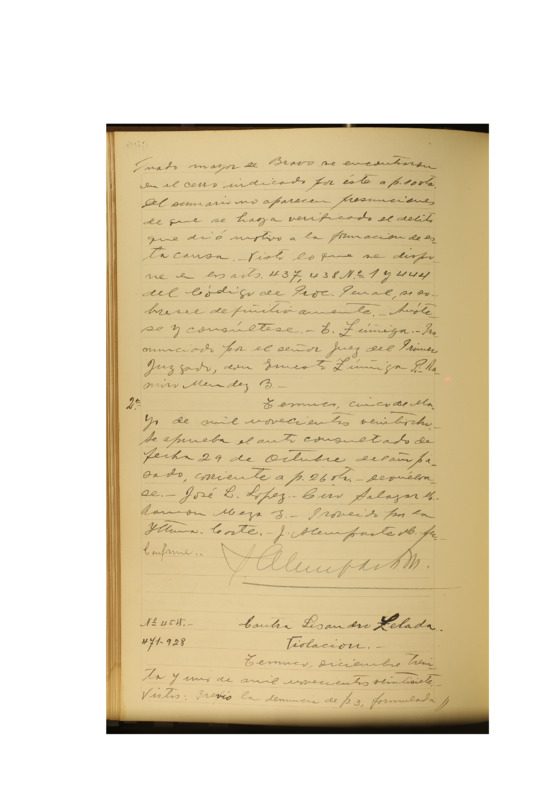 nado mayor de Bravo se encontraron
en el cerro indicado por éste a p.
del sumario no aparecen presunciones
de que se haya verificado el delito
que dió motivo a la formacion de es
ta causa. Visto lo que se dispo-
ne en los arts. 437, 438 N.º 1 y 444
del Código de Proc. Penal, se so-
bresee definitivamente. - Anóte-
se y consúltese. - E. Zúñiga. - Pro
nunciado por el señor Juez del Primer
Juzgado, don Ernesto Zúñiga P. Ra
miro Mendez B. -
2.ª Temuco, cinco de Ma
yo de mil novecientos veintiocho.
Se aprueba el auto consultado de
fecha 29 de Octubre del año pa-
sado, corriente a p. 26 vta. - devuélva
se. - José L. Lopez - Ciro Salazar M.
Ramon Meza B. - Proveido por la
Iltma. Corte. - J. Alemparte M.
Conforme.
Alemparte M.
N.º 458. - Contra Lisandro Zelada.
471-928 Violacion. -
Temuco, diciembre trein
ta y uno de mil novecientos veintisiete.
Vistos: Previo la denuncia de p 3, formulada p